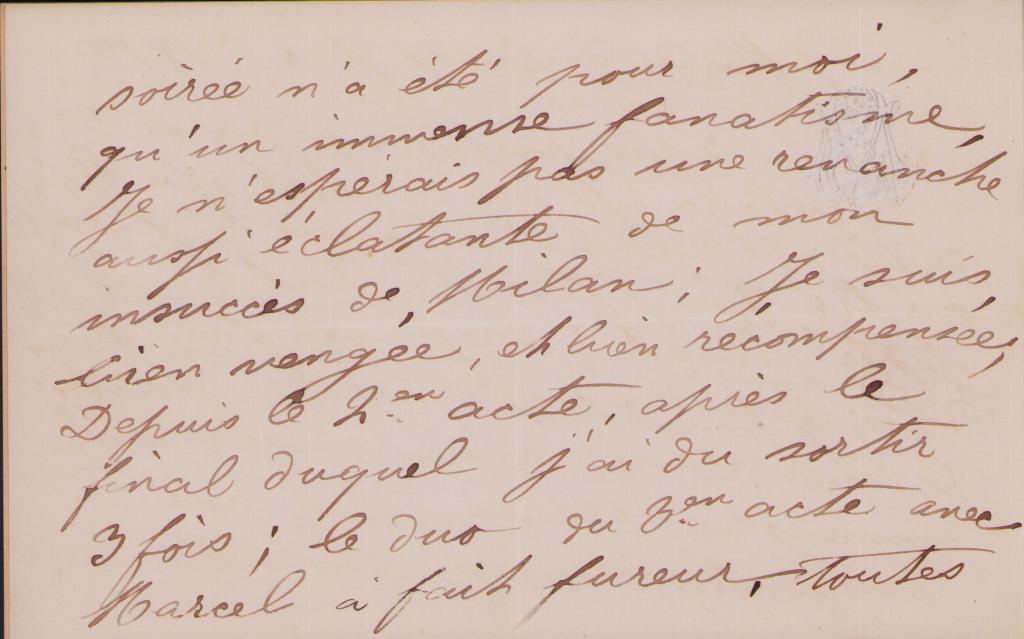 soirée n'a été pour moi,
qu'un immense fanatisme,
Je n'espérais pas une revanche
aussi éclatante de mon
insuccès de, Milan; Je suis,
bien vengée, et bien récompensée;
Depuis le 2.en acte, après le
final duquel j'ai du sortir
3 fois; le duo du 3.en acte avec
Marcel à fait fureur, toutes